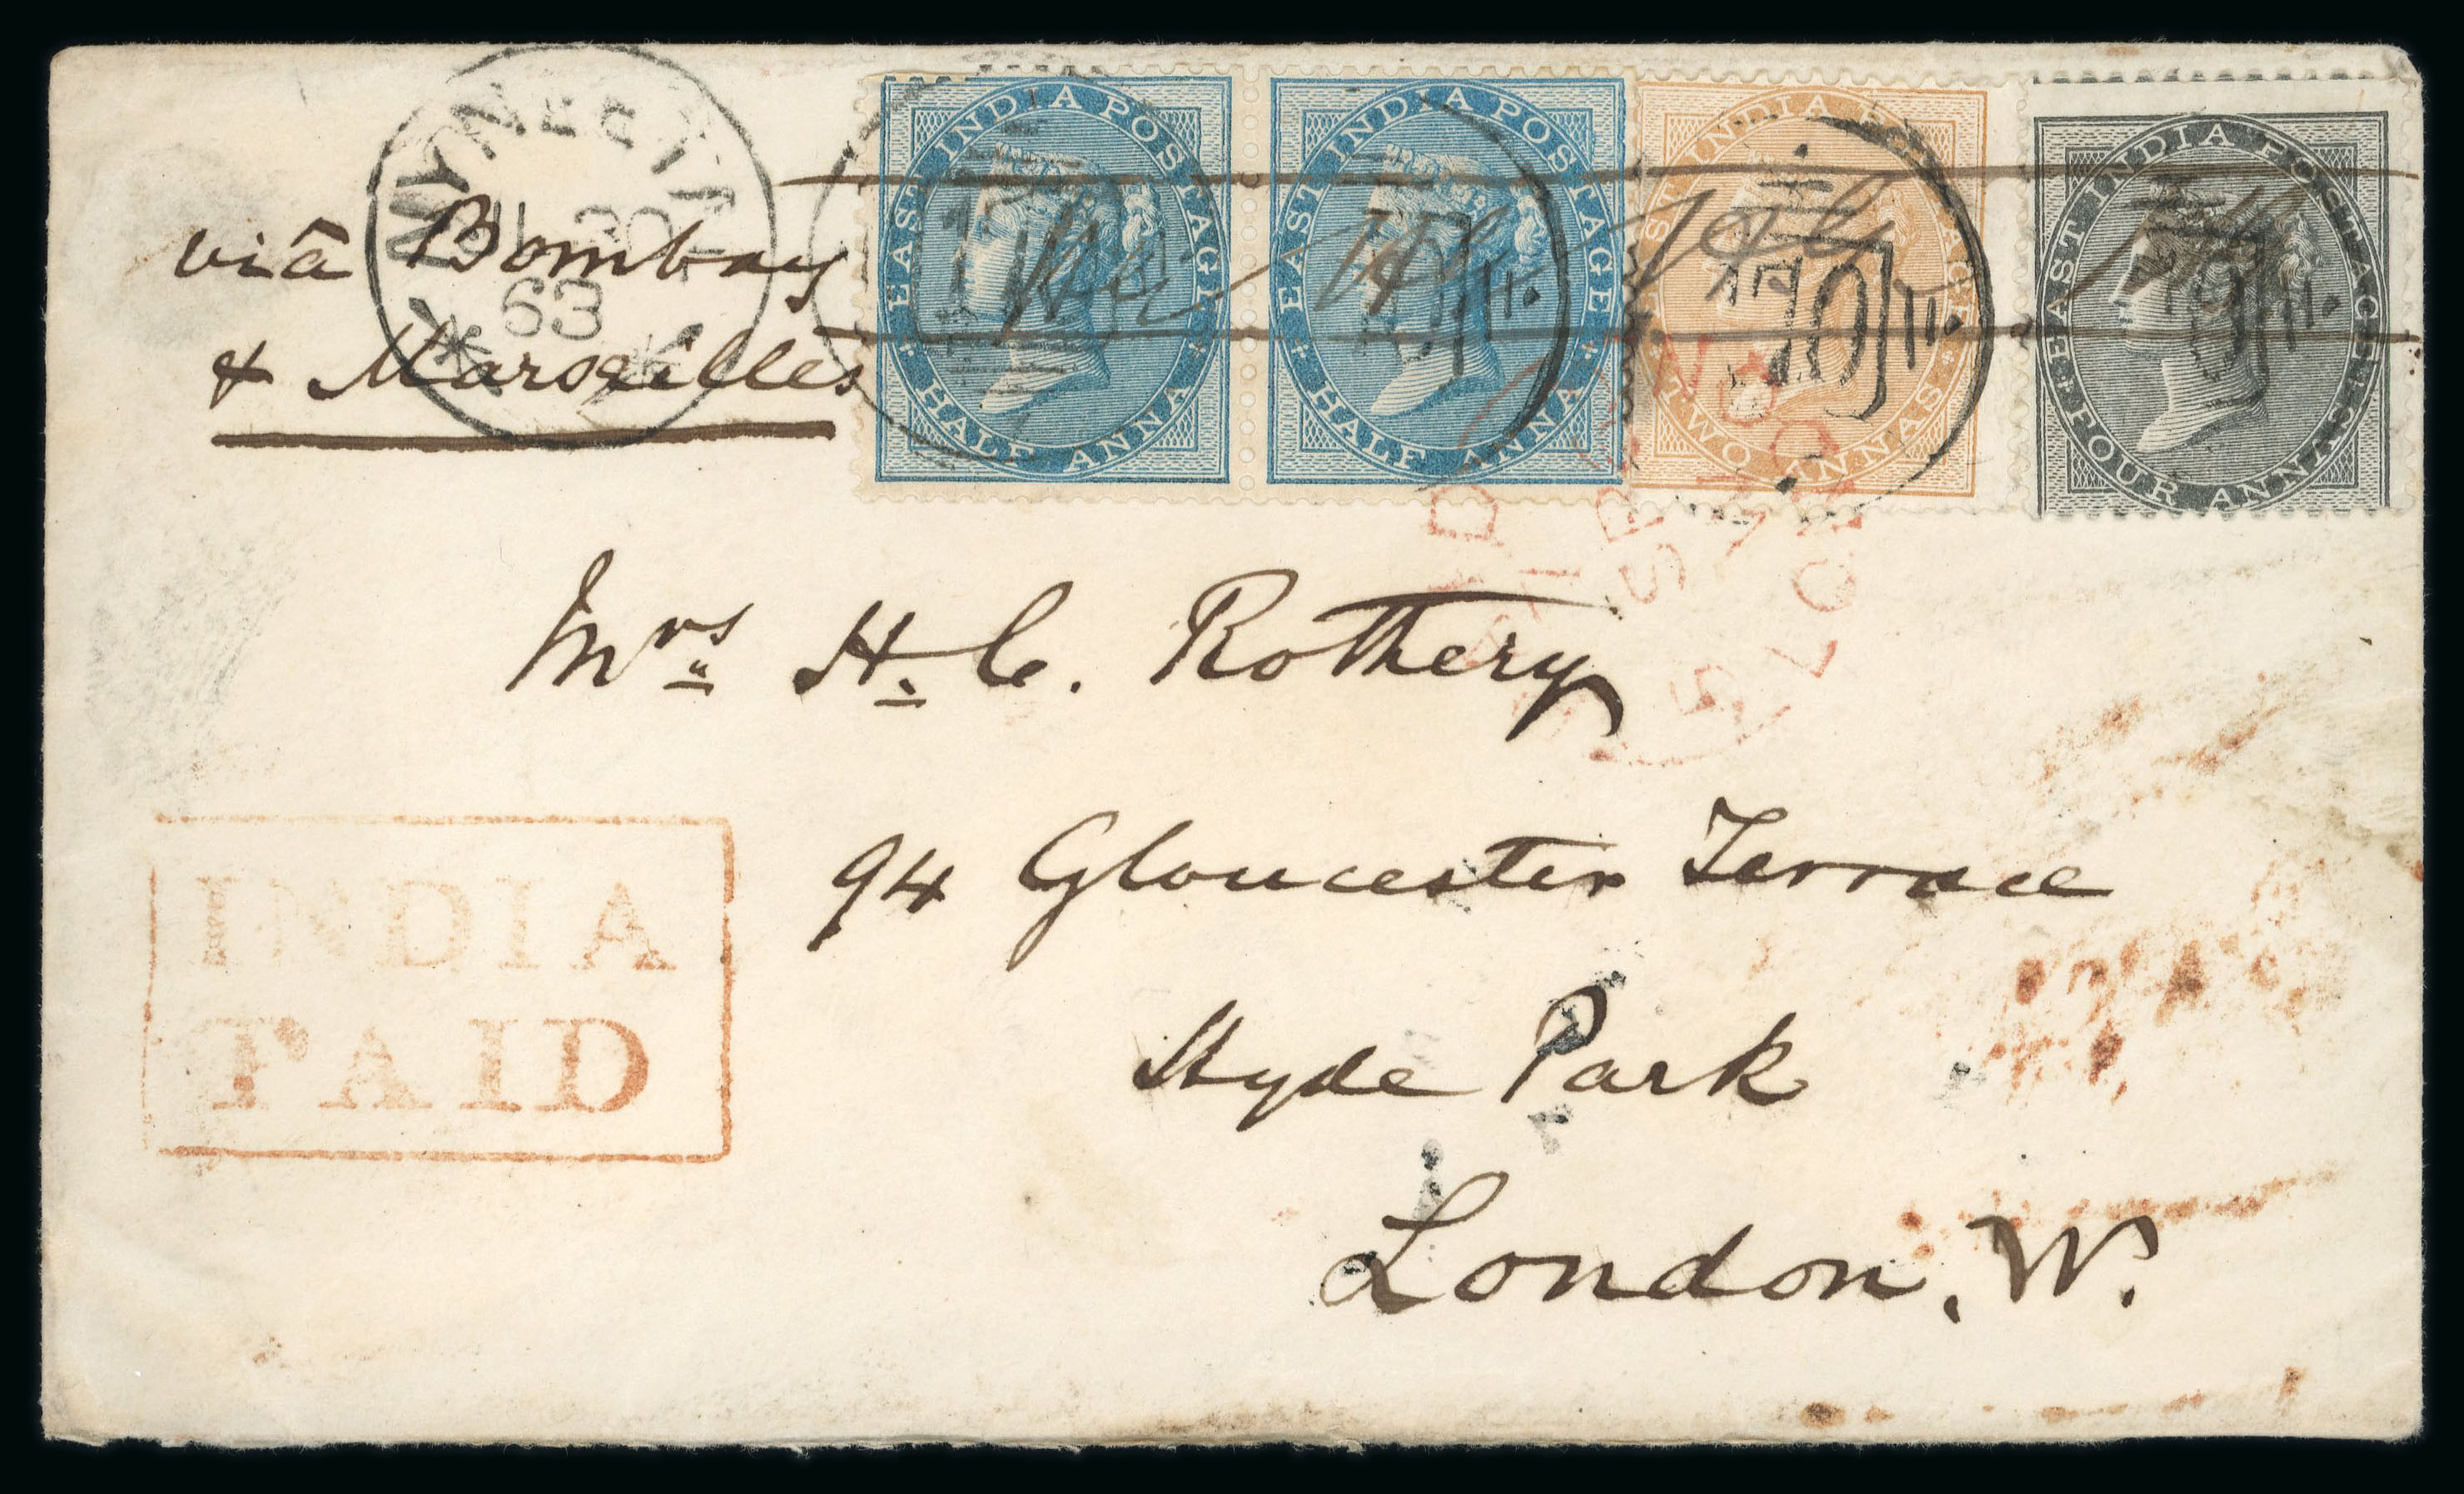 MYNEE TAL
JU 30
63
viâ Bombay
& Marseilles
EAST INDIA POSTAGE
HALF ANNA
EAST INDIA POSTAGE
HALF ANNA
EAST INDIA POSTAGE
TWO ANNAS
EAST INDIA POSTAGE
FOUR ANNAS
170
170
Mrs. H. C. Rothery
94 Gloucester Terrace
Hyde Park
London, W.
INDIA
PAID